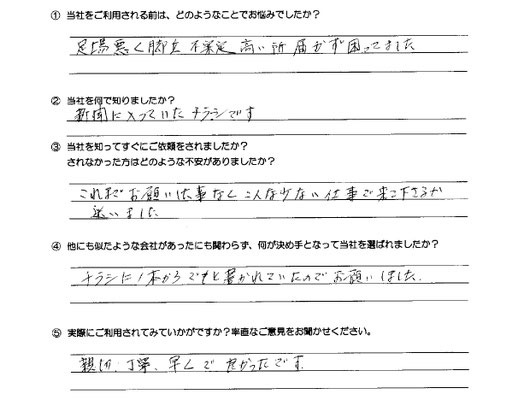 ① 当社をご利用される前は、どのようなことでお悩みでしたか？
足場悪く脚立不安定高い所届かず困ってました
② 当社を何で知りましたか？
新聞に入っていたチラシです
③ 当社を知ってすぐにご依頼をされましたか？
されなかった方はどのような不安がありましたか？
これまでお願いした事なくこんな少ない仕事で来て下さるか
迷いました
④ 他にも似たような会社があったにも関わらず、何が決め手となって当社を選ばれましたか？
チラシに1本からでもと書かれていたのでお願いしました.
⑤ 実際にご利用されてみていかがですか？率直なご意見をお聞かせください。
親切、丁寧、早くてよかったです.